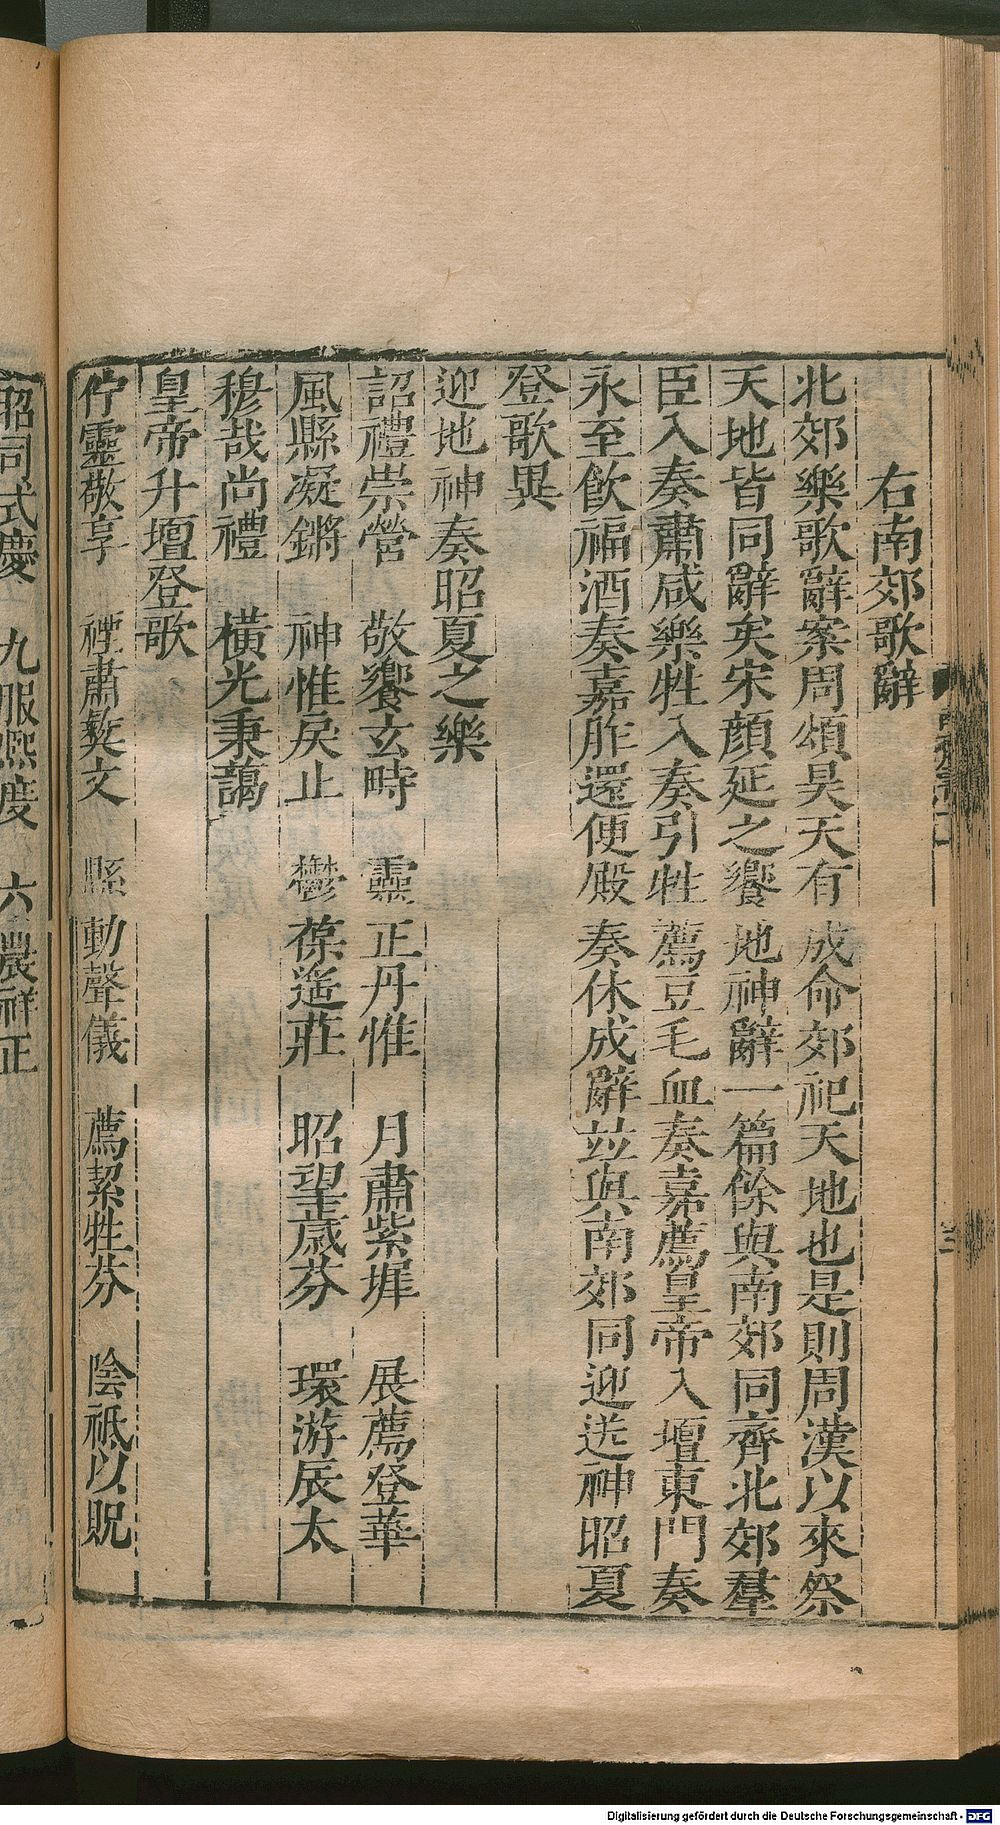 右南郊歌辭
北郊樂歌辭案周頌昊天有成命郊祀天地也是則周漢以來祭
天地皆同辭矣宋顏延之饗地神辭一篇餘與南郊同齊北郊羣
臣入奏肅咸樂牲入奏引牲薦豆毛血奏嘉薦皇帝入壇東門奏
永至飲福酒奏嘉胙還便殿奏休成辭竝與南郊同迎送神昭夏
登歌異
迎地神奏昭夏之樂
詔禮崇營　敬饗玄畤　靈正丹惟　月肅紫墀　展薦登華
風縣凝鏘　神惟戾止　鬱葆遙莊　昭望歲芬　環游辰太
穆哉尚禮　橫光秉藹
皇帝升壇登歌
佇靈敬享　禋肅彝文　縣動聲儀　薦絜牲芬　陰祇以貺
昭司式慶　九服熙度　六農祥正
Digitalisierung gefördert durch die Deutsche Forschungsgemeinschaft - DFG